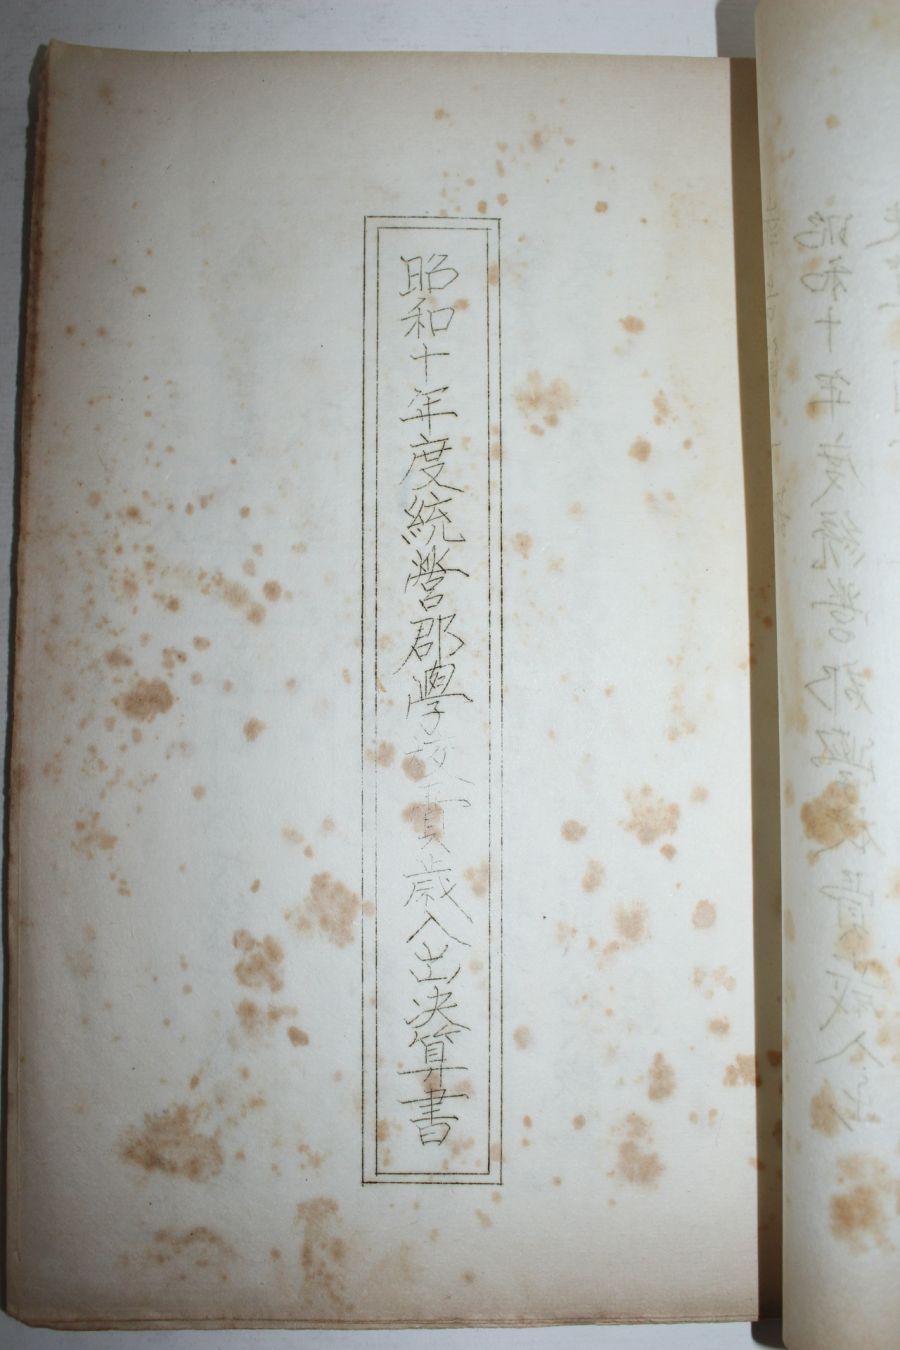 昭和十年度統營郡學校費歳入出決算書